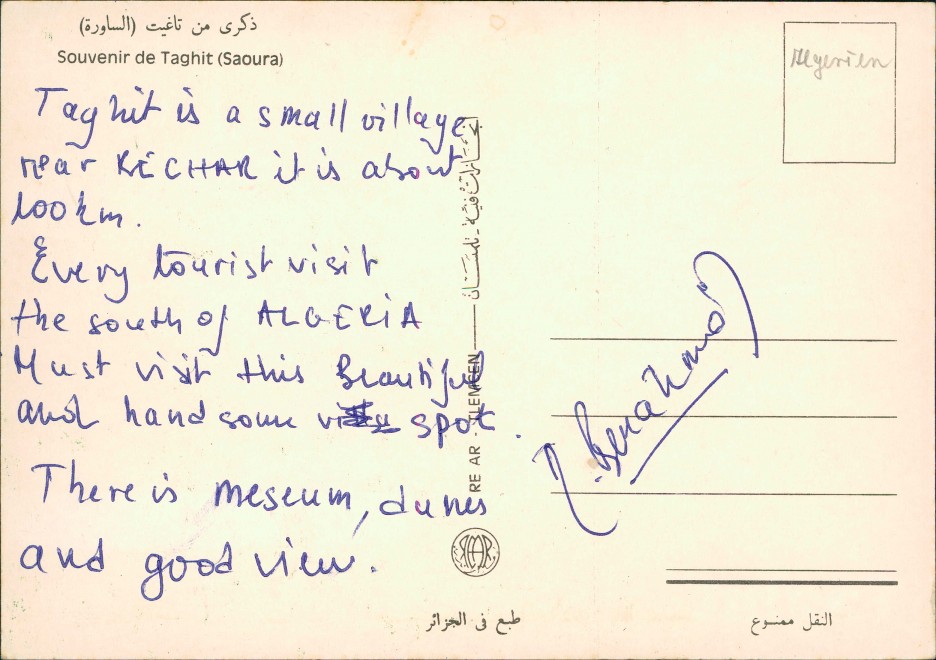 ذكرى من تاغيت (الساورة)
Souvenir de Taghit (Saoura)
Taghit is a small village
near BÉCHAR it is about
100 km.
Every tourist visit
the south of ALGERIA
Must visit this Beautiful
and handsome spot.
There is meseum, dunes
and good view.
RE AR - TLEMCEN
Algerien
Benahmed
طبع في الجزائر
النقل ممنوع